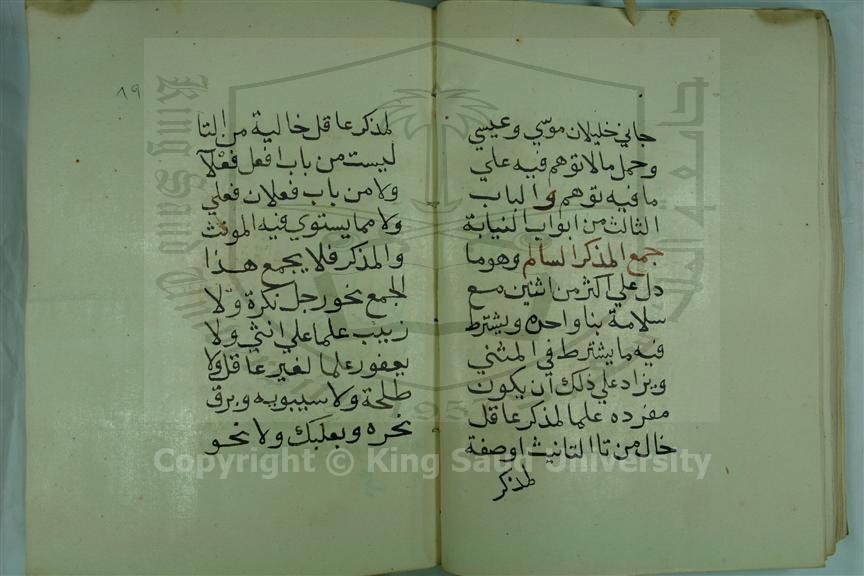 جاني خليلان موسي وعيسي
وحمل مالا توهم فيه علي
ما فيه توهم والباب
الثالث من ابواب النيابة
جمع المذكر السالم وهو ما
دل علي اكثر من اثنين مع
سلامة بنا واحده ويشترط
فيه ما يشترط في المثني
ويزاد علي ذلك ان يكون
مفرده علما لمذكر عاقل
خال من تا التانيث او صفة
لمذكر
١٩
لمذكر عاقل خالية من التا
ليست من باب افعل فعلآ
ولا من باب فعلان فعلي
ولا مما يستوي فيه المونث
والمذكر فلا يجمع هذا
الجمع نحو رجل نكرة ولا
زينب علما علي انثي ولا
يعفور علما لغير عاقل ولا
طلحة ولا سيبويه وبرق
نحره وبعلبك ولا نحو
جامعة الملك
King Saud
1957
Copyright © King Saud University